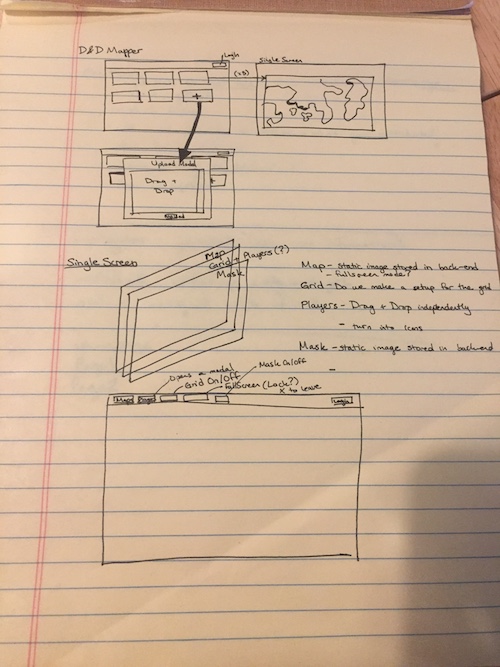 D&D Mapper
Login
Single Screen
(x5)
+
Upload Modal
Drag +
Drop
Single Screen
Map
Grid + Players (?)
Mask
Map - static image stored in back-end
- fullscreen mode?
Grid - Do we make a setup for the grid
Players - Drag + Drop independently
- turn into icons
Mask - static image stored in back-end
-
Opens a modal
Mask On/Off
Grid On/Off
FullScreen (Lock?)
X to leave
Maps
Login